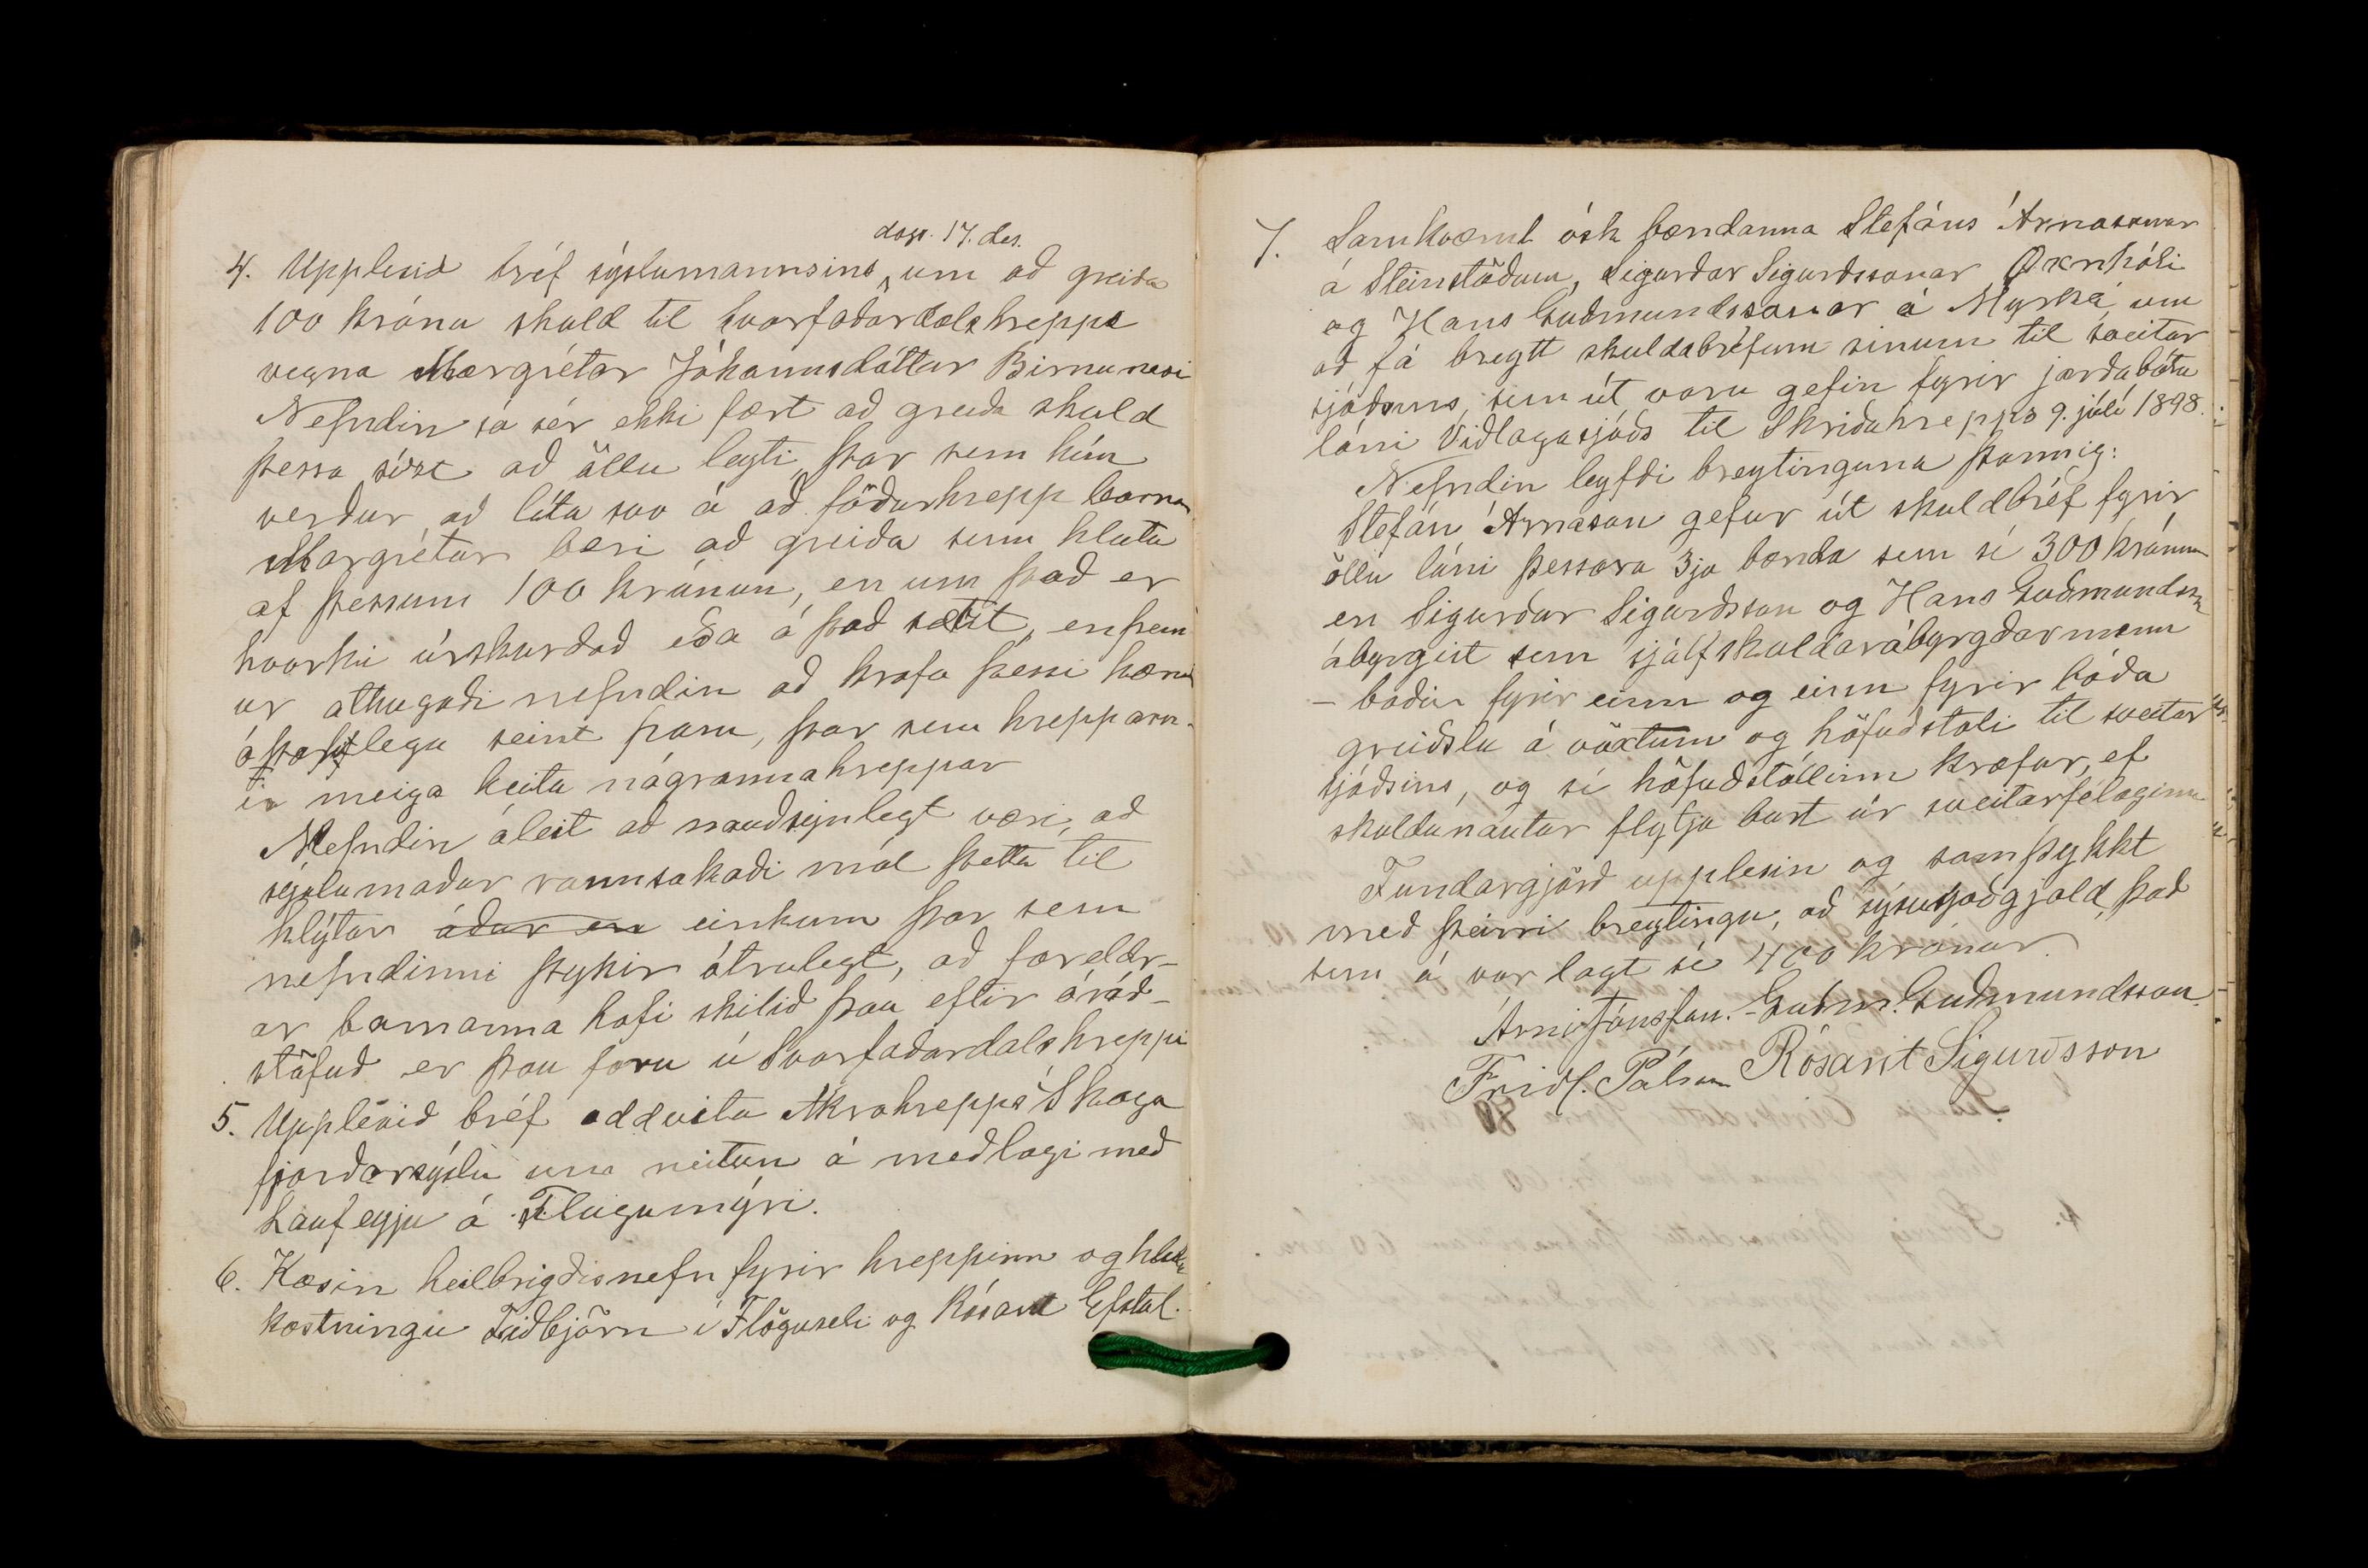 dags. 17. des.
4. Upplesið bréf sýslumannsins um að greiða
100 króna skuld til Svarfaðardalshrepps
vegna Margrétar Jóhannsdóttur Birnunesi
Nefndin sá sér ekki fært að greiða skuld
þessa sízt að öllu leyti þar sem hún
verður að líta svo á að föðurhrepp barna
Margrétar beri að greiða sinn hluta
af þessum 100 krónum, en um það er
hvorki úrskurðað eða á það sætst, enfrem
ur athugaði nefndin að krafa þessi kæmi
óþarflega seint fram, þar sem hrepparn-
ir meiga heita nágrannahreppar
Nefndin áleit að nauðsynlegt væri, að
sýslumaður rannsakaði mál þetta til
hlýtar áður en einkum þar sem
nefndinni þykir ótrulegt, að foreldr-
ar barnanna hafi skilið þau eftir óráð-
stöfuð er þau foru ú Svarfaðardalshreppi
5. Upplesið bréf oddvita Akrahrepps Skaga
fjarðarsýslu um neitun á meðlagi með
Laufeyju á Flugumýri.
6. Kosin heilbrigðisnefn fyrir hreppinn og hlutu
kostningu Fiðbjörn í Flöguseli og Rósant Efstal.
7. Samkvæmt ósk bændanna Stefáns Árnasonar
á Steinstöðum, Sigurðar Sigurðssonar Öxnhóli
og Hans Guðmundssonar á Myrká um
að fá breytt skuldabréfum sinum til sveitar
sjóðsins, sem út voru gefin fyrir jarðabóta
láni Viðlagasjóðs til Skriðuhrepps 9. júlí 1898.
Nefndin leyfði breytinguna þannig:
Stefán Árnason gefur út skuldbréf fyrir
öllu láni þessara 3ja bænda sem sé 300 krónum
en Sigurður Sigurðsson og Hans Guðmundsson
ábyrgist sem sjálfskuldarábyrgðarmenn
– báðir fyrir einn og einn fyrir báða
greiðslu á vöxtum og höfuðstóli til sveitar
sjóðsins, og sé höfuðstóllinn kræfur, ef
skuldunautar flytja burt úr sveitarfélaginu
Fundargjörð upplesin og samþykkt
með þeirri breytingu, að sýsusjóðgjald það
sem á var lagt sé 400 krónur.
Árni Jónsson. - Guðm. Guðmundsson
Friðf. Pálsson Rósant Sigurðsson